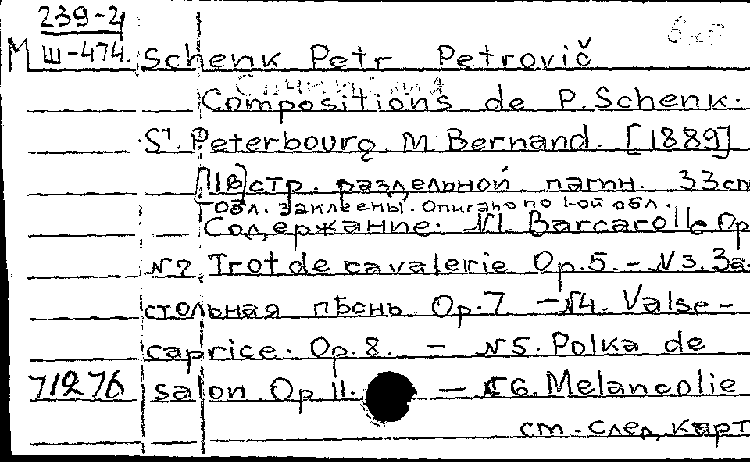 239-2
М Ш-474. Schenk Petr Petrovič
Compositions de P. Schenk.
St. Peterbourg. M. Bernand. [1889]
[118] стр. раздельной пагин. 33см
Обл. заклеены. Описано по 1-ой обл.
Содержание: №1. Barcarolle Op
№2. Trot de cavalerie Op. 5. – №3. За-
стольная пѣснь Op. 7 – №4. Valse-
caprice. Op. 8. – №5. Polka de
71276 salon Op. 11. – №6. Melancolie
см. след. карт